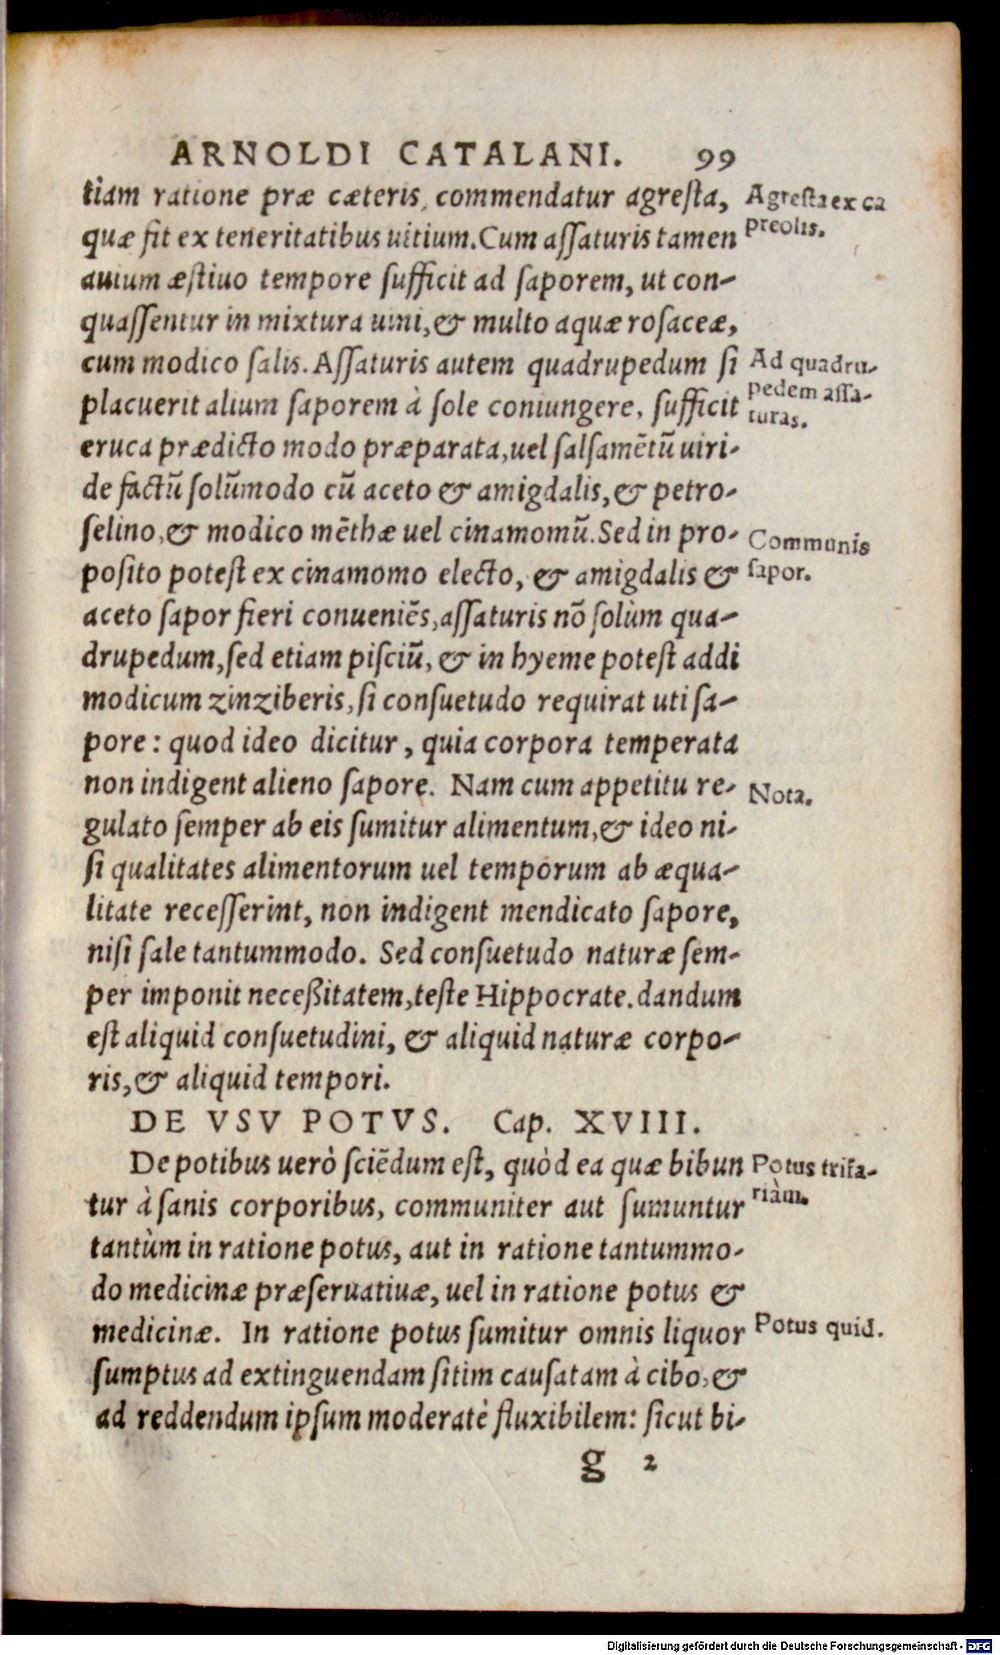 ARNOLDI CATALANI. 99
tiam ratione præ cæteris, commendatur agreſta,
Agreſta ex ca
quæ fit ex teneritatibus uitium. Cum aſſaturis tamen
preolis.
auium æſtiuo tempore ſufficit ad ſaporem, ut con-
quaſſentur in mixtura uini, & multo aquæ roſaceæ,
cum modico ſalis. Aſſaturis autem quadrupedum ſi
Ad quadru-
placuerit alium ſaporem à ſole coniungere, ſufficit
pedem aſſa-
turas.
eruca prædicto modo præparata, uel ſalſamētū uiri-
de factū ſolūmodo cū aceto & amigdalis, & petro-
ſelino, & modico mēthæ uel cinamomū. Sed in pro-
Communis
poſito poteſt ex cinamomo electo, & amigdalis &
ſapor.
aceto ſapor fieri conueniēs, aſſaturis nō ſolùm qua-
drupedum, ſed etiam piſciū, & in hyeme poteſt addi
modicum zinziberis, ſi conſuetudo requirat uti ſa-
pore: quod ideo dicitur, quia corpora temperata
non indigent alieno ſapore. Nam cum appetitu re-
Nota.
gulato ſemper ab eis ſumitur alimentum, & ideo ni-
ſi qualitates alimentorum uel temporum ab æqua-
litate receſſerint, non indigent mendicato ſapore,
niſi ſale tantummodo. Sed conſuetudo naturæ ſem-
per imponit neceßitatem, teſte Hippocrate. dandum
eſt aliquid conſuetudini, & aliquid naturæ corpo-
ris, & aliquid tempori.
DE VSV POTVS. Cap. XVIII.
De potibus uerò ſciēdum eſt, quòd ea quæ bibun
Potus trifa-
tur à ſanis corporibus, communiter aut ſumuntur
riàm.
tantùm in ratione potus, aut in ratione tantummo-
do medicinæ præſeruatiuæ, uel in ratione potus &
medicinæ. In ratione potus ſumitur omnis liquor
Potus quid.
ſumptus ad extinguendam ſitim cauſatam à cibo, &
ad reddendum ipſum moderatè fluxibilem: ſicut bi-
g 2
Digitalisierung gefördert durch die Deutsche Forschungsgemeinschaft - DFG